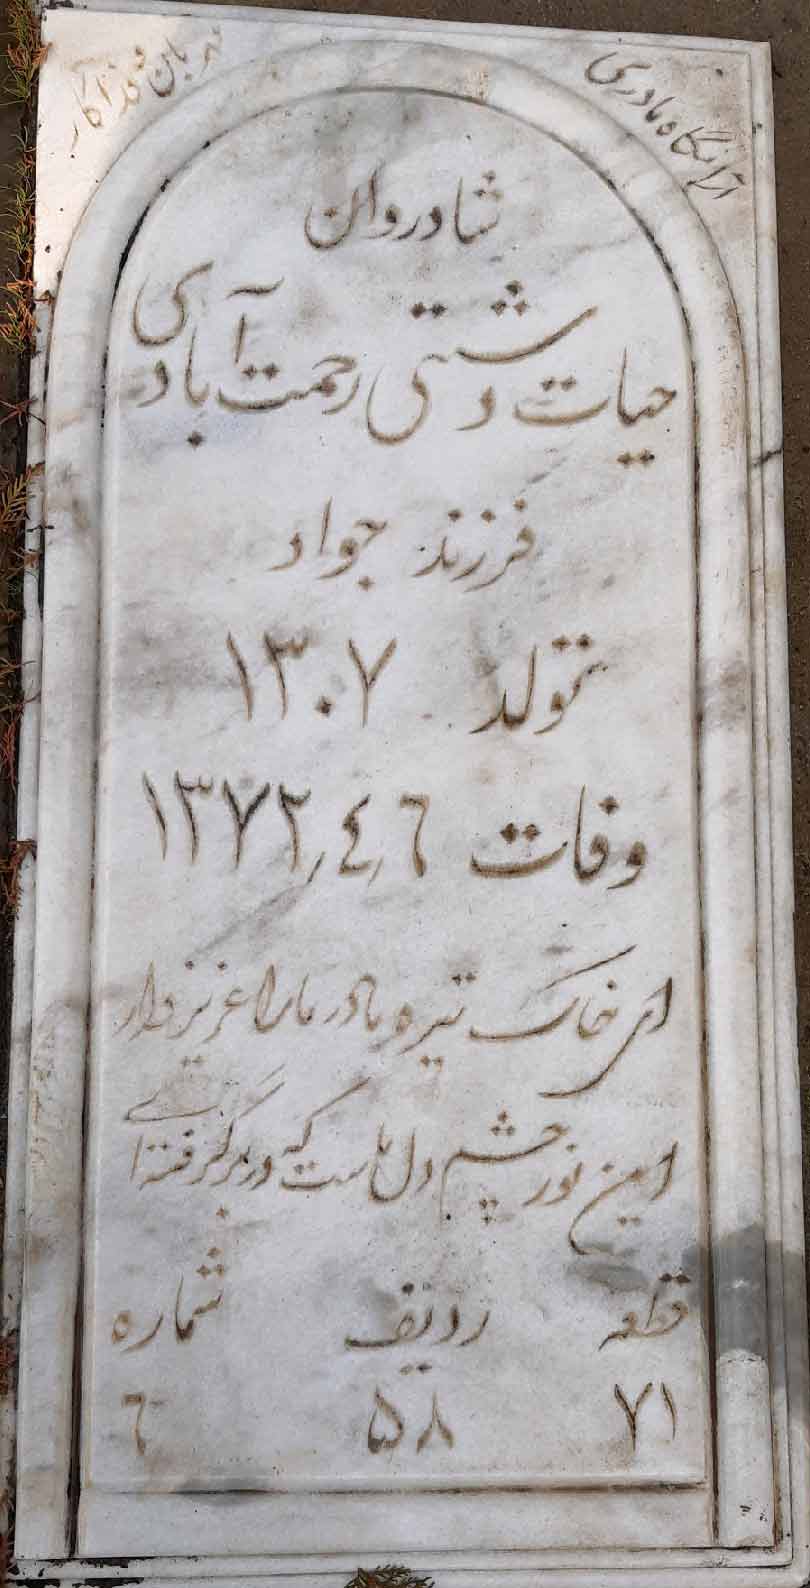 آرامگاه مادری
مهربان و فداکار
شادروان
حیات دشتی رحمت آبادی
فرزند جواد
تولد ۱۳۰۷
وفات ۱۳۷۲٫۴٫۶
ای خاک تیره مادر ما را عزیز دار
این نور چشم دل ماست که در بر گرفته ای
قطعه ردیف شماره
۷۱ ۵۸ ۶